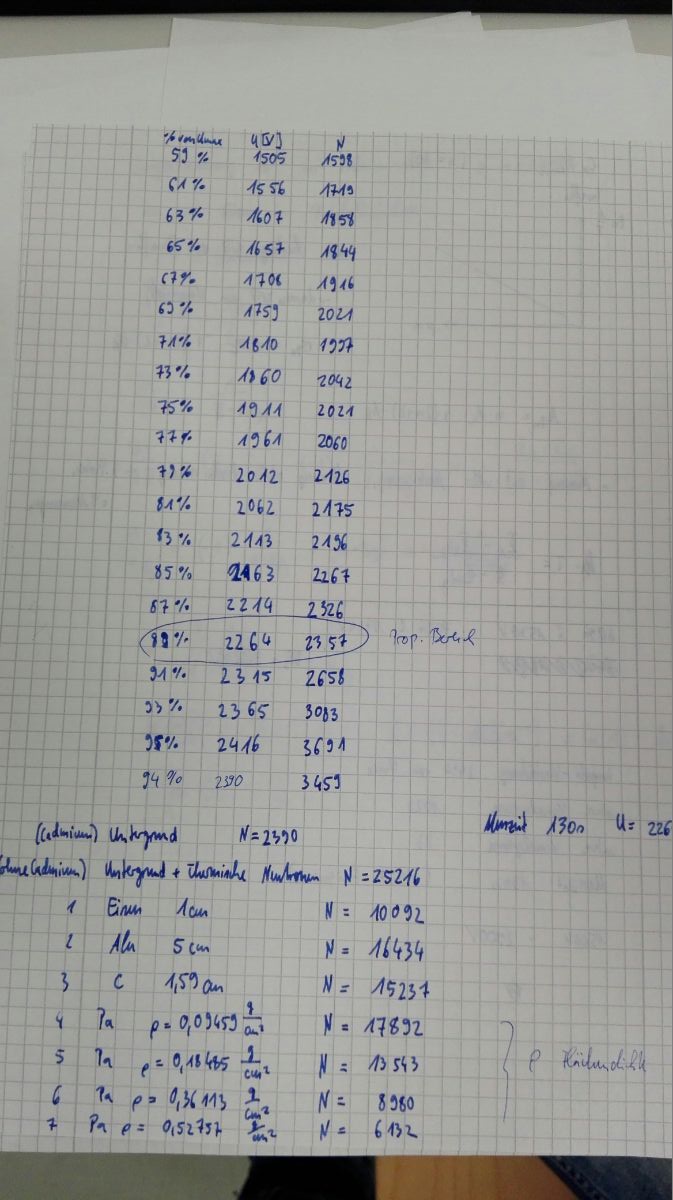 % von Umax U [V] N
59 % 1505 1598
61 % 1556 1719
63 % 1607 1858
65 % 1657 1844
67 % 1708 1916
69 % 1759 2021
71 % 1810 1997
73 % 1860 2042
75 % 1911 2021
77 % 1961 2060
79 % 2012 2126
81 % 2062 2175
83 % 2113 2196
85 % 2163 2267
87 % 2214 2326
89 % 2264 2357 Prop. Bereich
91 % 2315 2658
93 % 2365 3083
95 % 2416 3691
94 % 2390 3459
(Cadmium) Untergrund N = 2390 Messzeit 1300 U = 226
(ohne Cadmium) Untergrund + Thermische Neutronen N = 25216
1 Eisen 1 cm N = 10092
2 Alu 5 cm N = 16434
3 C 1,59 cm N = 15237
4 Pa ρ = 0,09459 g/cm² N = 17892
5 Pa ρ = 0,18485 g/cm² N = 13543 ρ Flächendichte
6 Pa ρ = 0,36113 g/cm² N = 8980
7 Pa ρ = 0,52757 g/cm² N = 6132